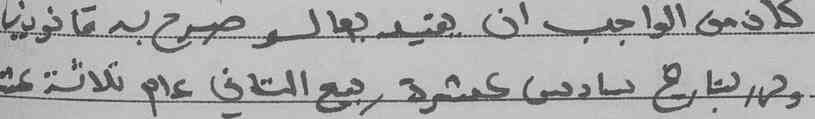 كان من الواجب ان يفيد بها لو صرح به قانونيا
وحرر بتاريخ سادس عشرة ربيع الثاني عام ثلاثة عشر